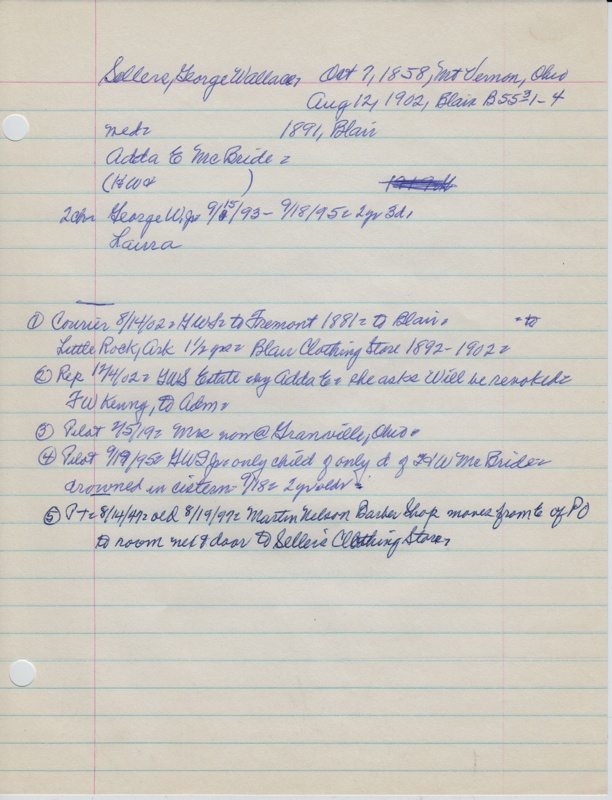 Sellers, George Wallace, Oct 7, 1858, Mt Vernon, Ohio
Aug 12, 1902, Blair B55 1-4
med= 1891, Blair
Adda E McBride=
(H W= )
2chn George W. Jr= 9/15/93 - 9/18/95= 2yr 3d.
Laura
① Courier 8/14/02= GWS= to Fremont 1881= to Blair= to
Little Rock, Ark 1½ yrs= Blair Clothing Store 1892-1902=
② Rep 12/4/02= GWS Estate by Adda E= she asks Will be revoked=
F W Kenny, to Adm=
③ Pilot 2/5/19= Mrs now @ Granville, Ohio=
④ Pilot 9/19/95= GWS Jr= only child of only d of H W McBride=
drowned in cistern= 9/18= 2yr old=
⑤ PT= 8/14/47= old 8/19/97= Martin Nelson Barber Shop moves from E of PO
to room next door to Sellers Clothing Store=